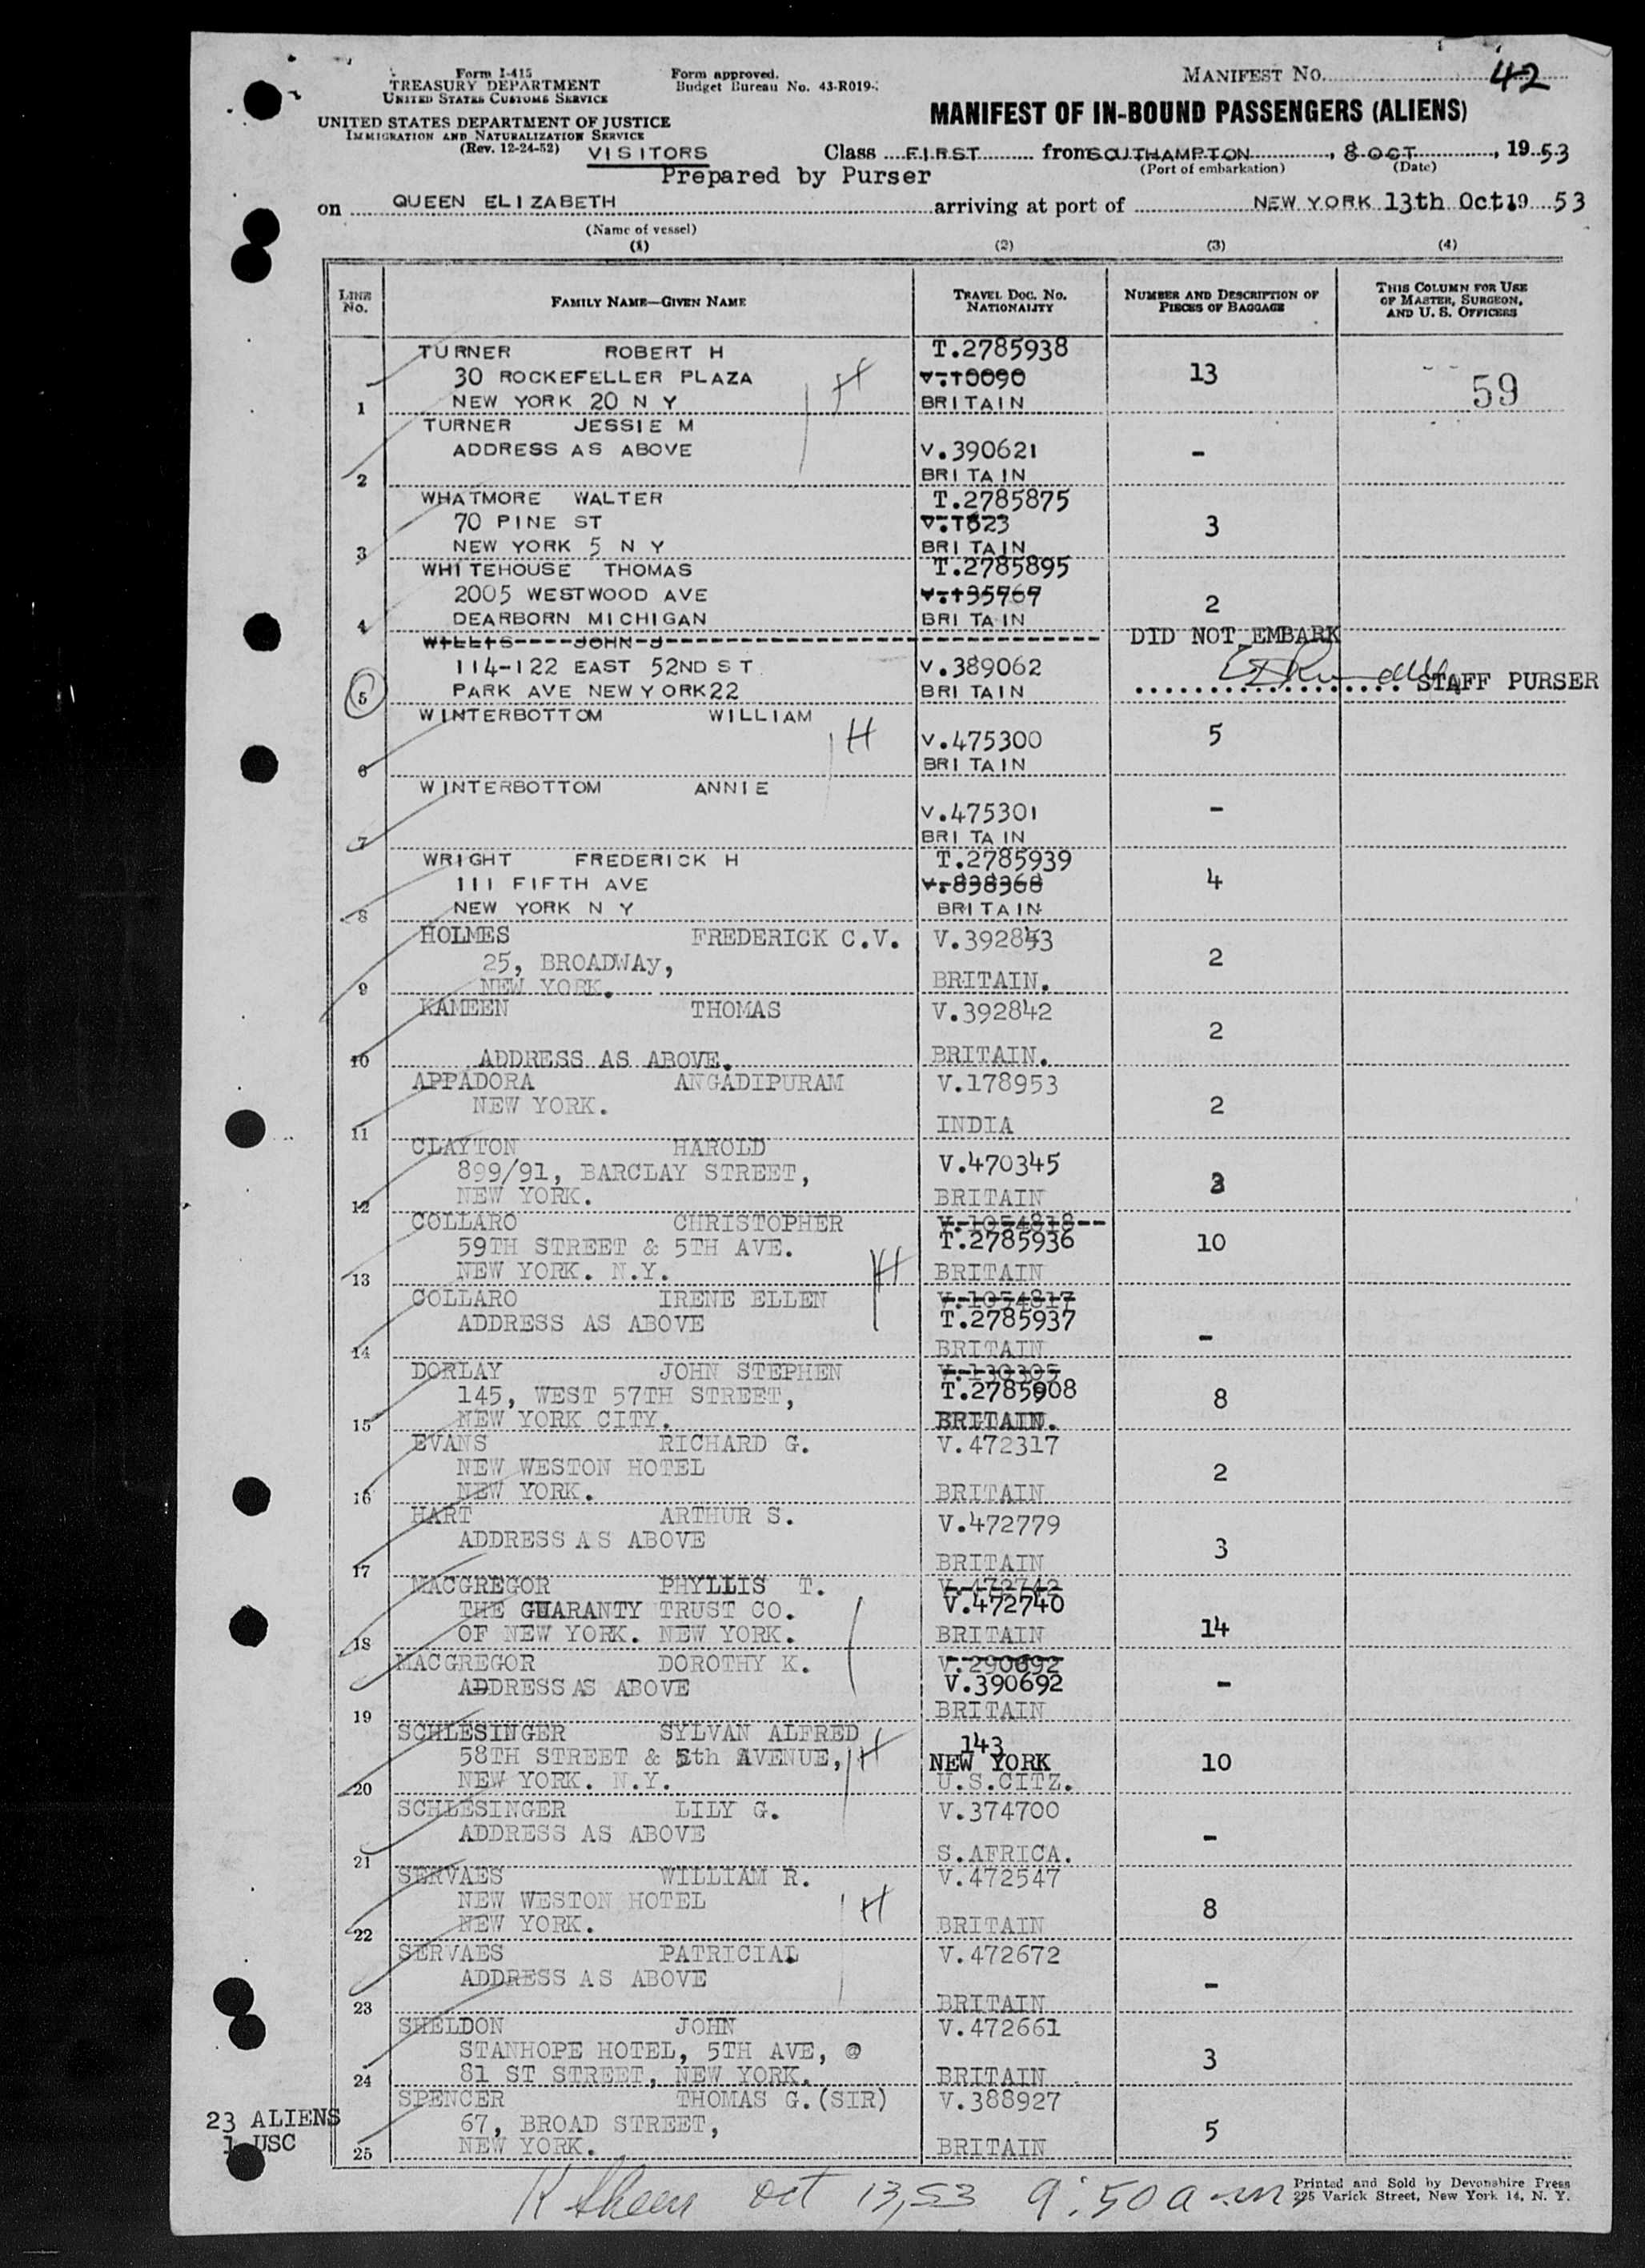 Form I-415
TREASURY DEPARTMENT
UNITED STATES CUSTOMS SERVICE
UNITED STATES DEPARTMENT OF JUSTICE
IMMIGRATION AND NATURALIZATION SERVICE
(Rev. 12-24-52)
Form approved.
Budget Bureau No. 43-R019-
MANIFEST NO. 42
MANIFEST OF IN-BOUND PASSENGERS (ALIENS)
VISITORS Class FIRST from SOUTHAMPTON, 8 OCT, 1953
(Port of embarkation) (Date)
Prepared by Purser
on QUEEN ELIZABETH arriving at port of NEW YORK 13th Oct. 19 53
(Name of vessel)
(1) (2) (3) (4)
LINE NO. FAMILY NAME—GIVEN NAME TRAVEL DOC. NO. NATIONALITY NUMBER AND DESCRIPTION OF PIECES OF BAGGAGE THIS COLUMN FOR USE OF MASTER, SURGEON, AND U. S. OFFICERS
TURNER ROBERT H T.2785938
30 ROCKEFELLER PLAZA H V.10090 13 59
1 NEW YORK 20 N Y BRITAIN
TURNER JESSIE M
ADDRESS AS ABOVE V.390621 -
2 BRITAIN
WHATMORE WALTER T.2785875
70 PINE ST V.1523 3
3 NEW YORK 5 N Y BRITAIN
WHITEHOUSE THOMAS T.2785895
2005 WESTWOOD AVE V.135767 2
4 DEARBORN MICHIGAN BRITAIN
WILLIS JOHN J DID NOT EMBARK
114-122 EAST 52ND ST V.389062 STAFF PURSER
5 PARK AVE NEW YORK22 BRITAIN
WINTERBOTTOM WILLIAM
H V.475300 5
6 BRITAIN
WINTERBOTTOM ANNIE
V.475301 -
7 BRITAIN
WRIGHT FREDERICK H T.2785939
111 FIFTH AVE V.838368 4
8 NEW YORK N Y BRITAIN
HOLMES FREDERICK C.V. V.392843
25, BROADWAy, 2
9 NEW YORK. BRITAIN.
KAMEEN THOMAS V.392842
2
10 ADDRESS AS ABOVE. BRITAIN.
APPADORA ANGADIPURAM V.178953
NEW YORK. 2
11 INDIA
CLAYTON HAROLD
899/91, BARCLAY STREET, V.470345
12 NEW YORK. BRITAIN 3
COLLARO CHRISTOPHER V.1054818
59TH STREET & 5TH AVE. T.2785936 10
13 NEW YORK. N.Y. H BRITAIN
COLLARO IRENE ELLEN V.1054817
ADDRESS AS ABOVE T.2785937 -
14 BRITAIN
DORLAY JOHN STEPHEN V.130305
145, WEST 57TH STREET, T.2785908 8
15 NEW YORK CITY. BRITAIN.
EVANS RICHARD G. V.472317
NEW WESTON HOTEL 2
16 NEW YORK. BRITAIN
HART ARTHUR S. V.472779
ADDRESS AS ABOVE 3
17 BRITAIN
MACGREGOR PHYLLIS T. V.472742
THE GUARANTY TRUST CO. V.472740 14
18 OF NEW YORK. NEW YORK. BRITAIN
MACGREGOR DOROTHY K. V.290692
ADDRESS AS ABOVE V.390692 -
19 BRITAIN
SCHLESINGER SYLVAN ALFRED 143
58TH STREET & 5th AVENUE, H NEW YORK 10
20 NEW YORK. N.Y. U.S.CITZ.
SCHLESINGER LILY G. V.374700
ADDRESS AS ABOVE -
21 S.AFRICA.
SERVAES WILLIAM R. V.472547
NEW WESTON HOTEL H 8
22 NEW YORK. BRITAIN
SERVAES PATRICIAL V.472672
ADDRESS AS ABOVE -
23 BRITAIN
SHELDON JOHN V.472661
STANHOPE HOTEL, 5TH AVE, @ 3
24 81 ST STREET, NEW YORK. BRITAIN
SPENCER THOMAS G.(SIR) V.388927
67, BROAD STREET, 5
25 NEW YORK. BRITAIN
23 ALIENS
1 USC
Oct 13, 53 9:50 a.m.
Printed and Sold by Devonshire Press
225 Varick Street, New York 14, N. Y.